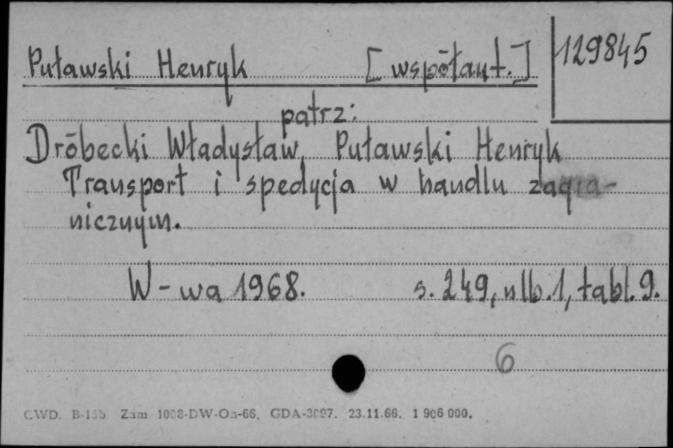 Puławski Henryk [współaut.] 129845
patrz:
Dróbecki Władysław, Puławski Henryk
Transport i spedycja w handlu zagra-
nicznym.
W-wa 1968. s. 249, nlb. 1, tabl. 9.
6
CWD. B-155 Zam. 1008-DW-Oa-66. GDA-3097. 23.11.66. 1 906 000.